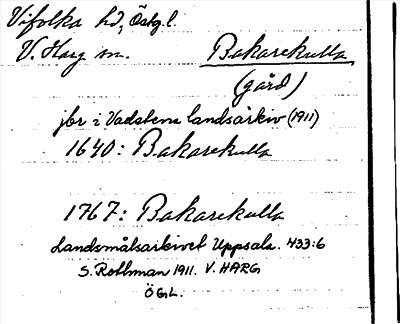 Vifolka hd, Östg.l.
V. Harg sn. Bakarekulla
(gård)
jbr i Vadstena landsarkiv (1911)
1640: Bakarekulla
1767: Bakarekulla
Landsmålsarkivet Uppsala. 433:6
S. Rothman 1911. V. HARG
ÖGL.